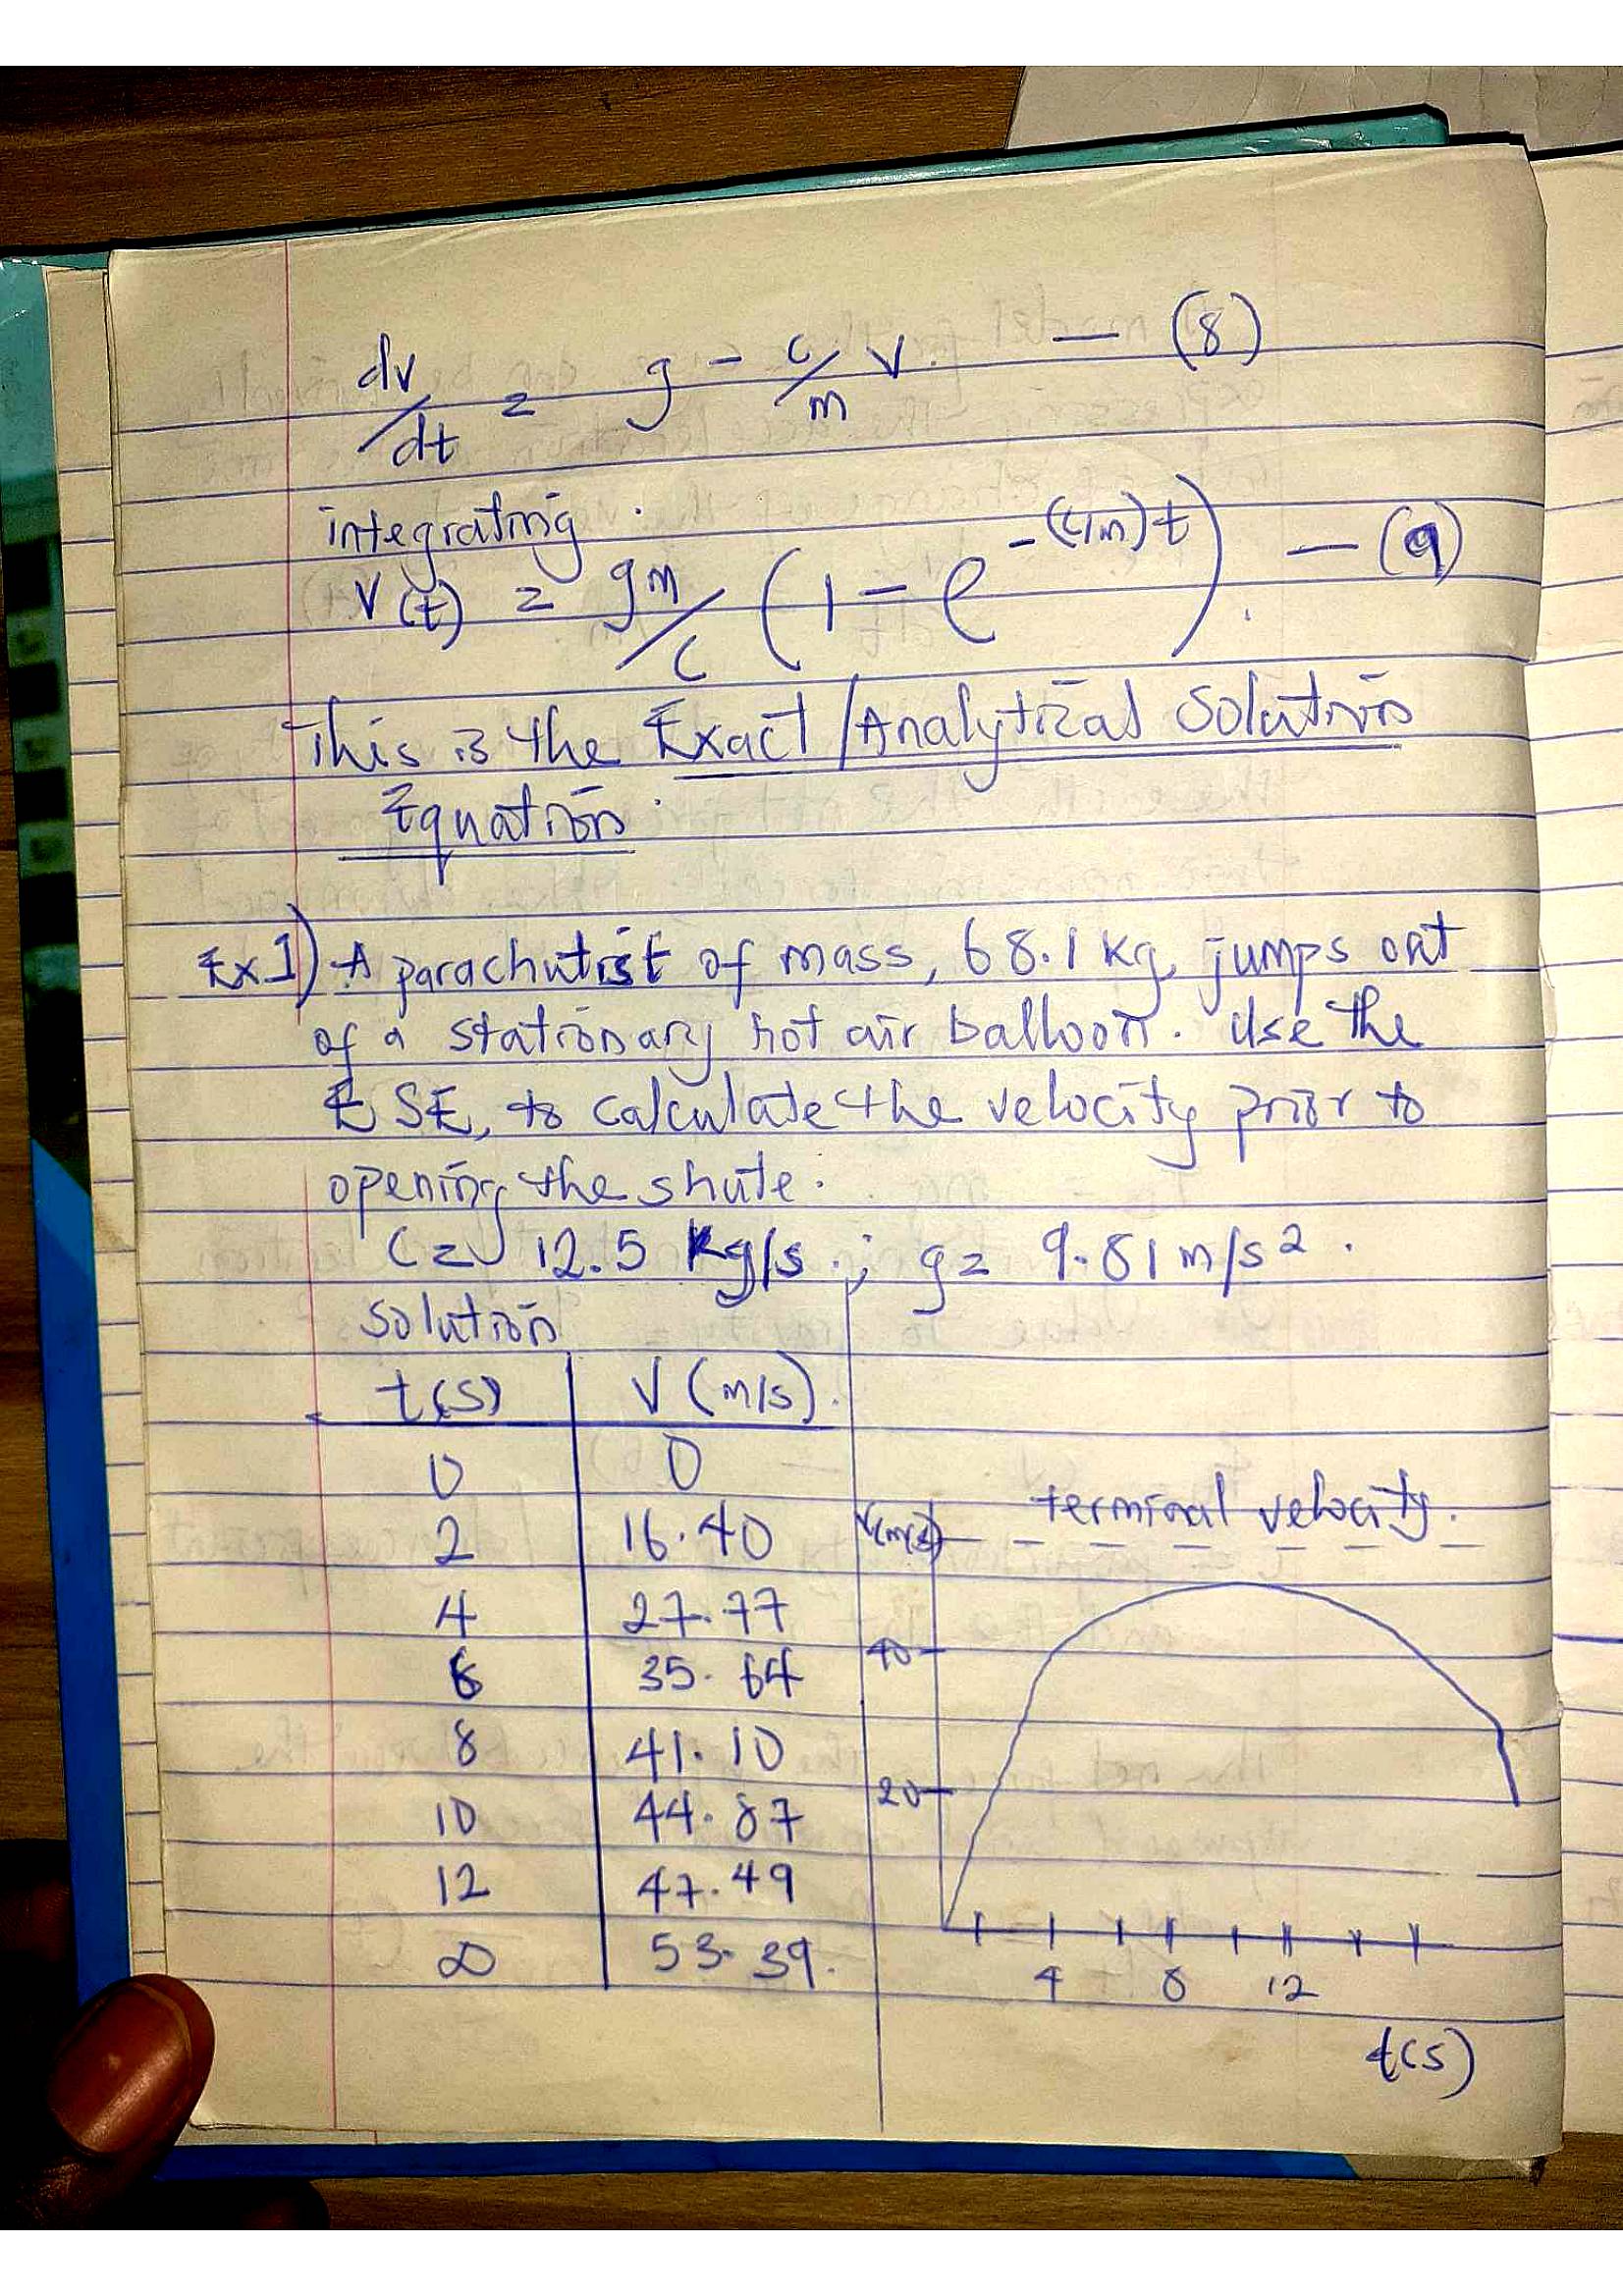 dv/dt = g - c/m v. — (8)
integrating.
v(t) = gm/c (1 - e^-(c/m)t). — (9)
This is the Exact/Analytical Solution
Equation.
Ex 1) A parachutist of mass, 68.1 kg, jumps out
of a stationary hot air balloon. Use the
ESE, to calculate the velocity prior to
opening the shute.
C = 12.5 kg/s ; g = 9.81 m/s².
Solution
t(s) V (m/s).
0 0
2 16.40
4 27.77
6 35.64
8 41.10
10 44.87
12 47.49
∞ 53.39.
V(m/s)
terminal velocity.
40
20
4 8 12
t(s)